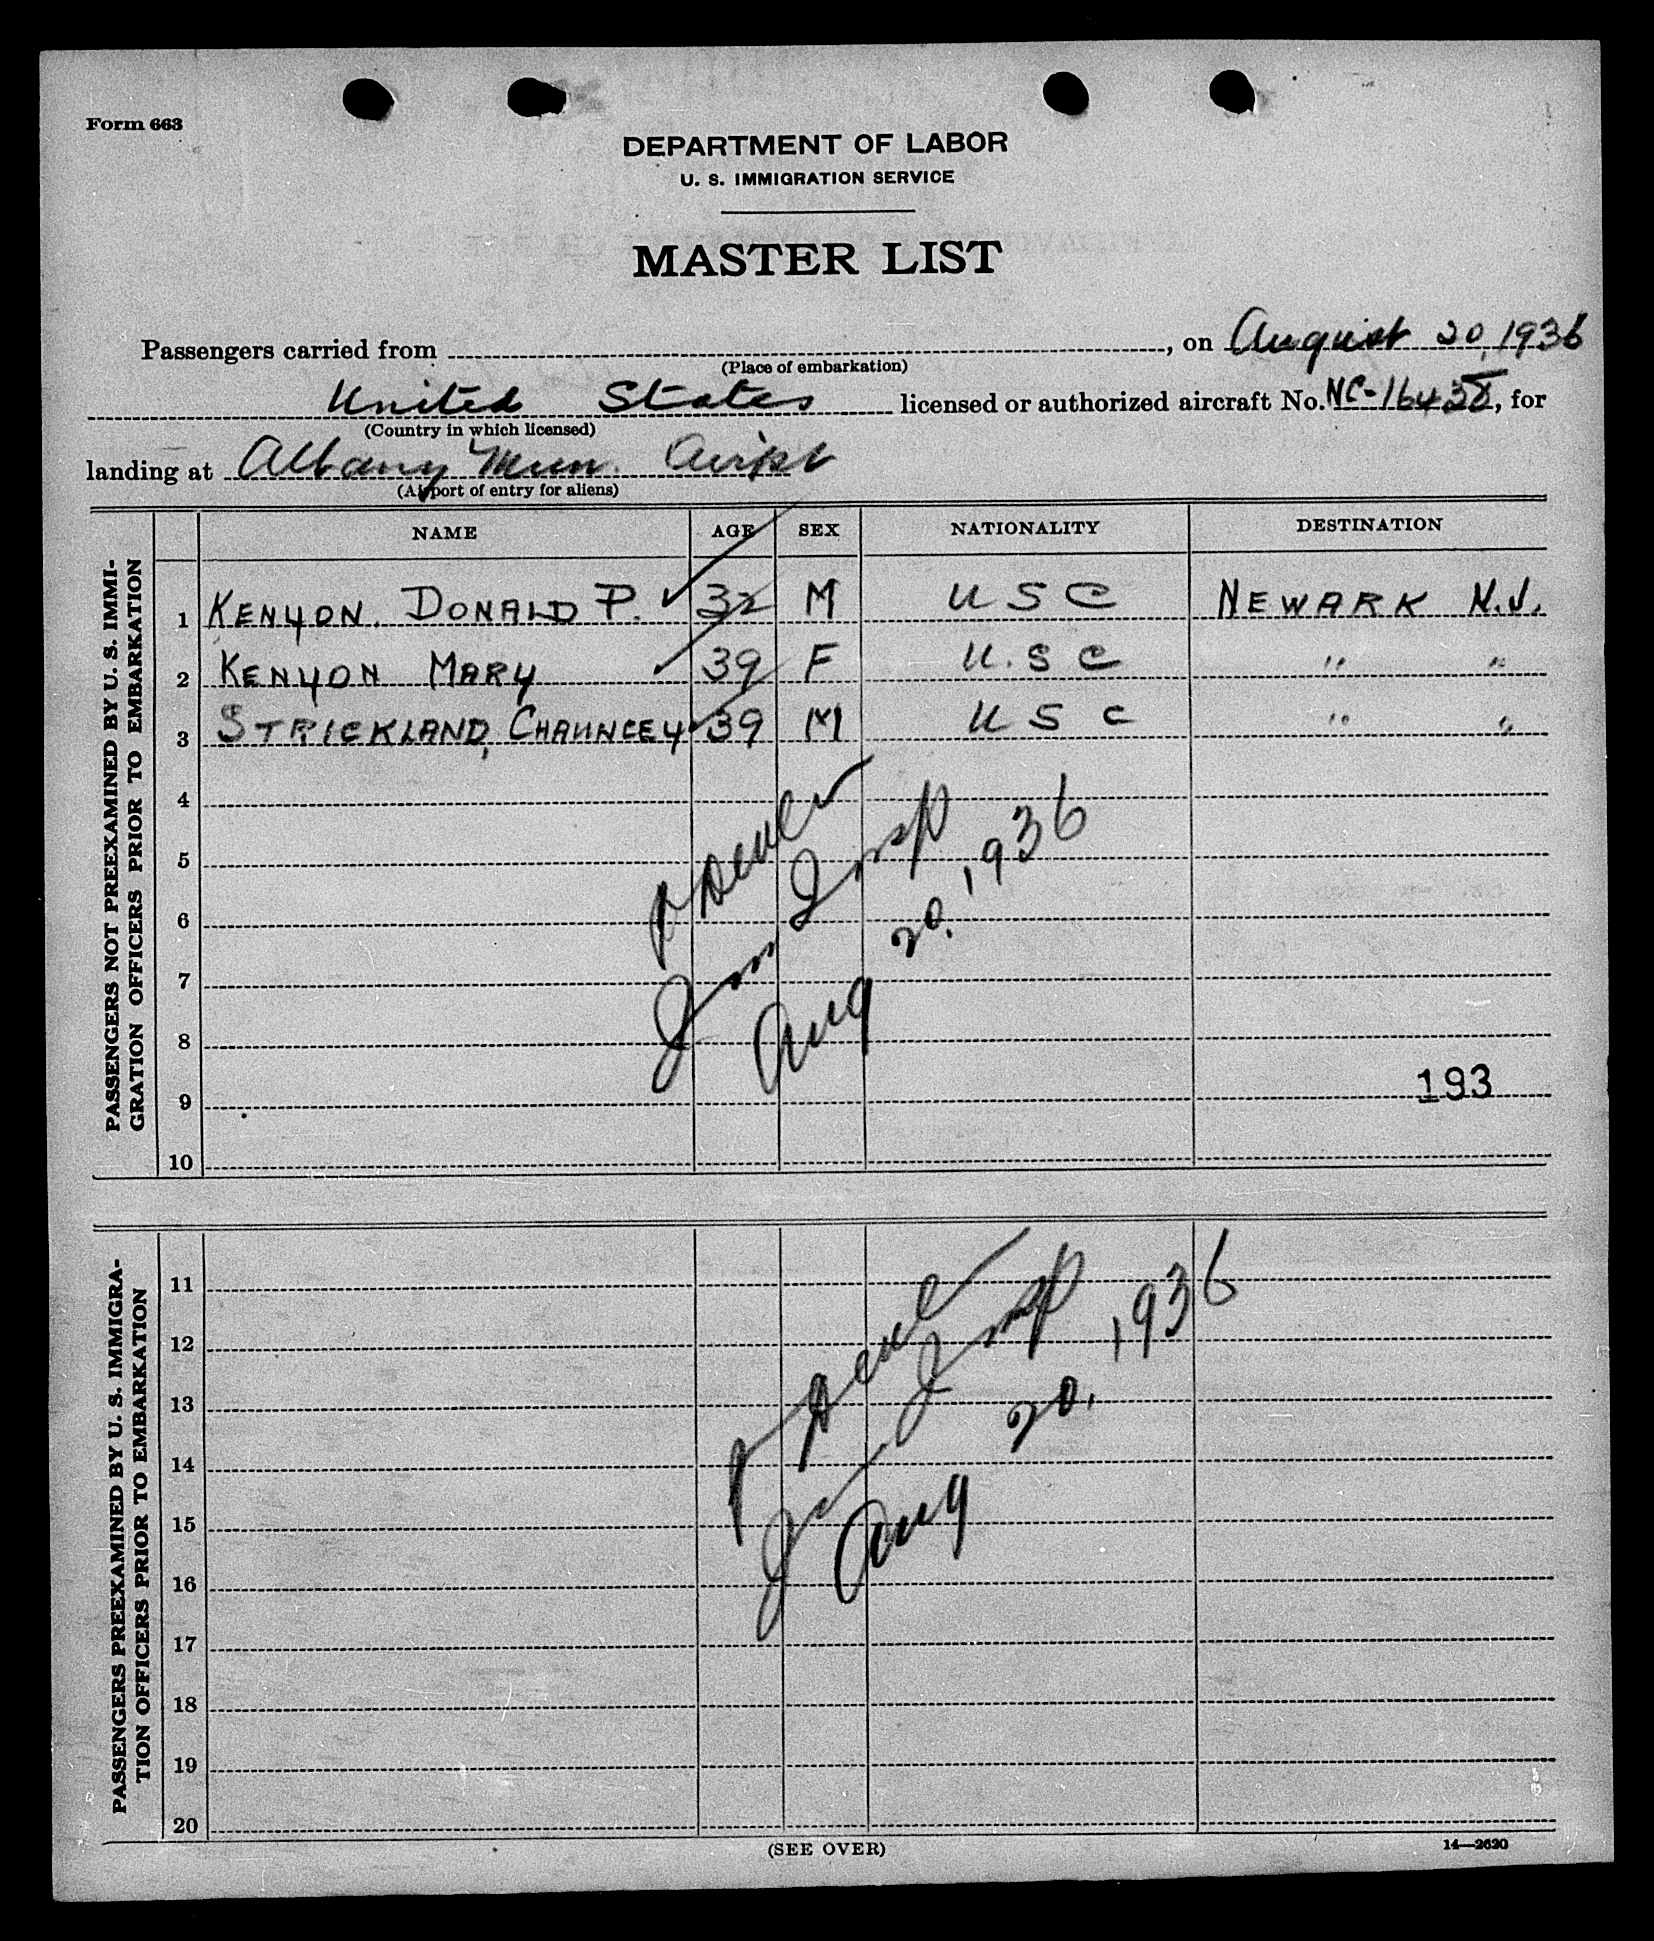 Form 663
DEPARTMENT OF LABOR
U. S. IMMIGRATION SERVICE
MASTER LIST
Passengers carried from , on August 20, 1936
(Place of embarkation)
United States licensed or authorized aircraft No. NC-16438, for
(Country in which licensed)
landing at Albany Mun. Airpt
(Airport of entry for aliens)
NAME AGE SEX NATIONALITY DESTINATION
PASSENGERS NOT PREEXAMINED BY U. S. IMMI-
GRATION OFFICERS PRIOR TO EMBARKATION
1 KENYON, DONALD P. 32 M U S C NEWARK N.J.
2 KENYON MARY 39 F U. S C " "
3 STRICKLAND, CHAUNCEY 39 M U S C " "
4
5
6
7
8
9
10
Imm Insp
Aug 20, 1936
193
PASSENGERS PREEXAMINED BY U. S. IMMIGRA-
TION OFFICERS PRIOR TO EMBARKATION
11
12
13
14
15
16
17
18
19
20
Imm Insp
Aug 20, 1936
(SEE OVER)
14—2620